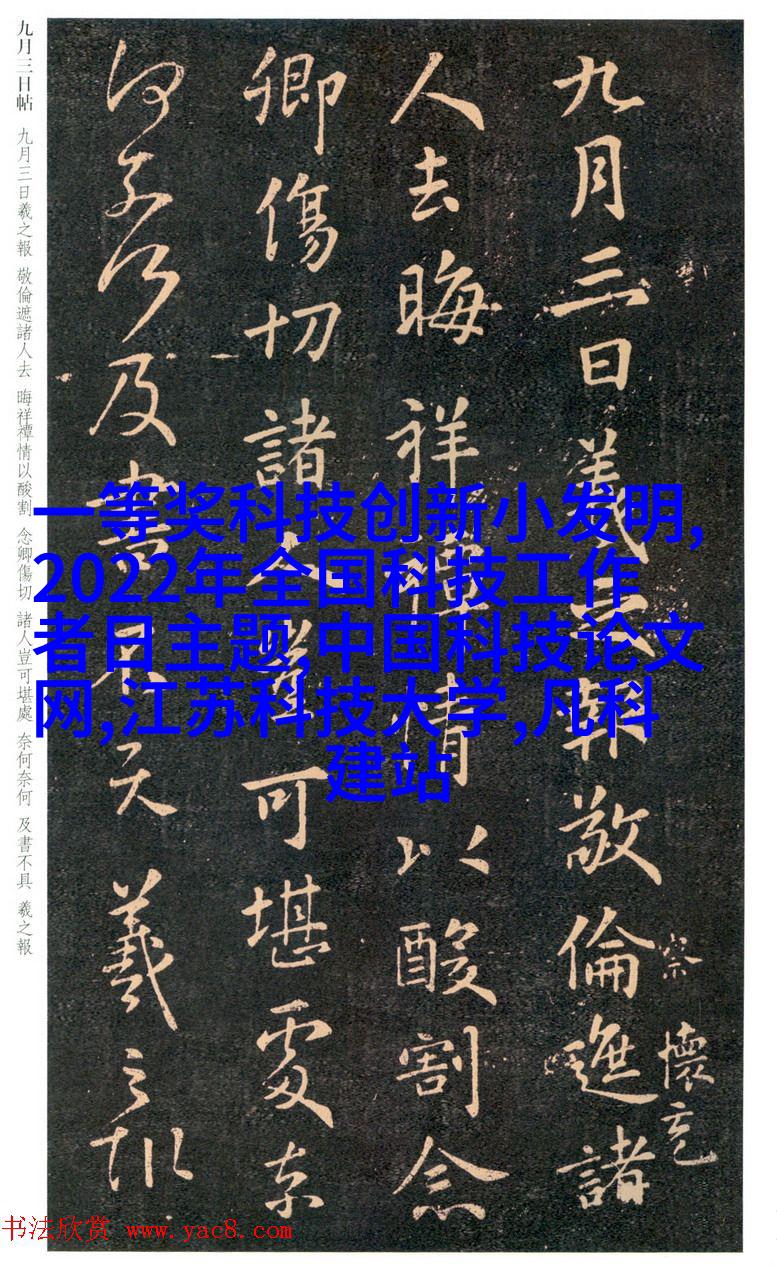 九月三日帖 九月三日羲之報 敬倫遮諸人去 晦祥禫情以酸割 念卿傷切 諸人豈可堪處 奈何奈何 及書不具 羲之報
九月三日羲之報敬倫遮諸
人去晦祥禫情以酸割念
卿傷切諸人豈可堪處奈
何奈何及書不具羲之報
察
懷充
一等奖科技创新小发明,
2022年全国科技工作
者日主题,中国科技论文
网,江苏科技大学,凡科
建站
书法欣赏 www.yac8.com